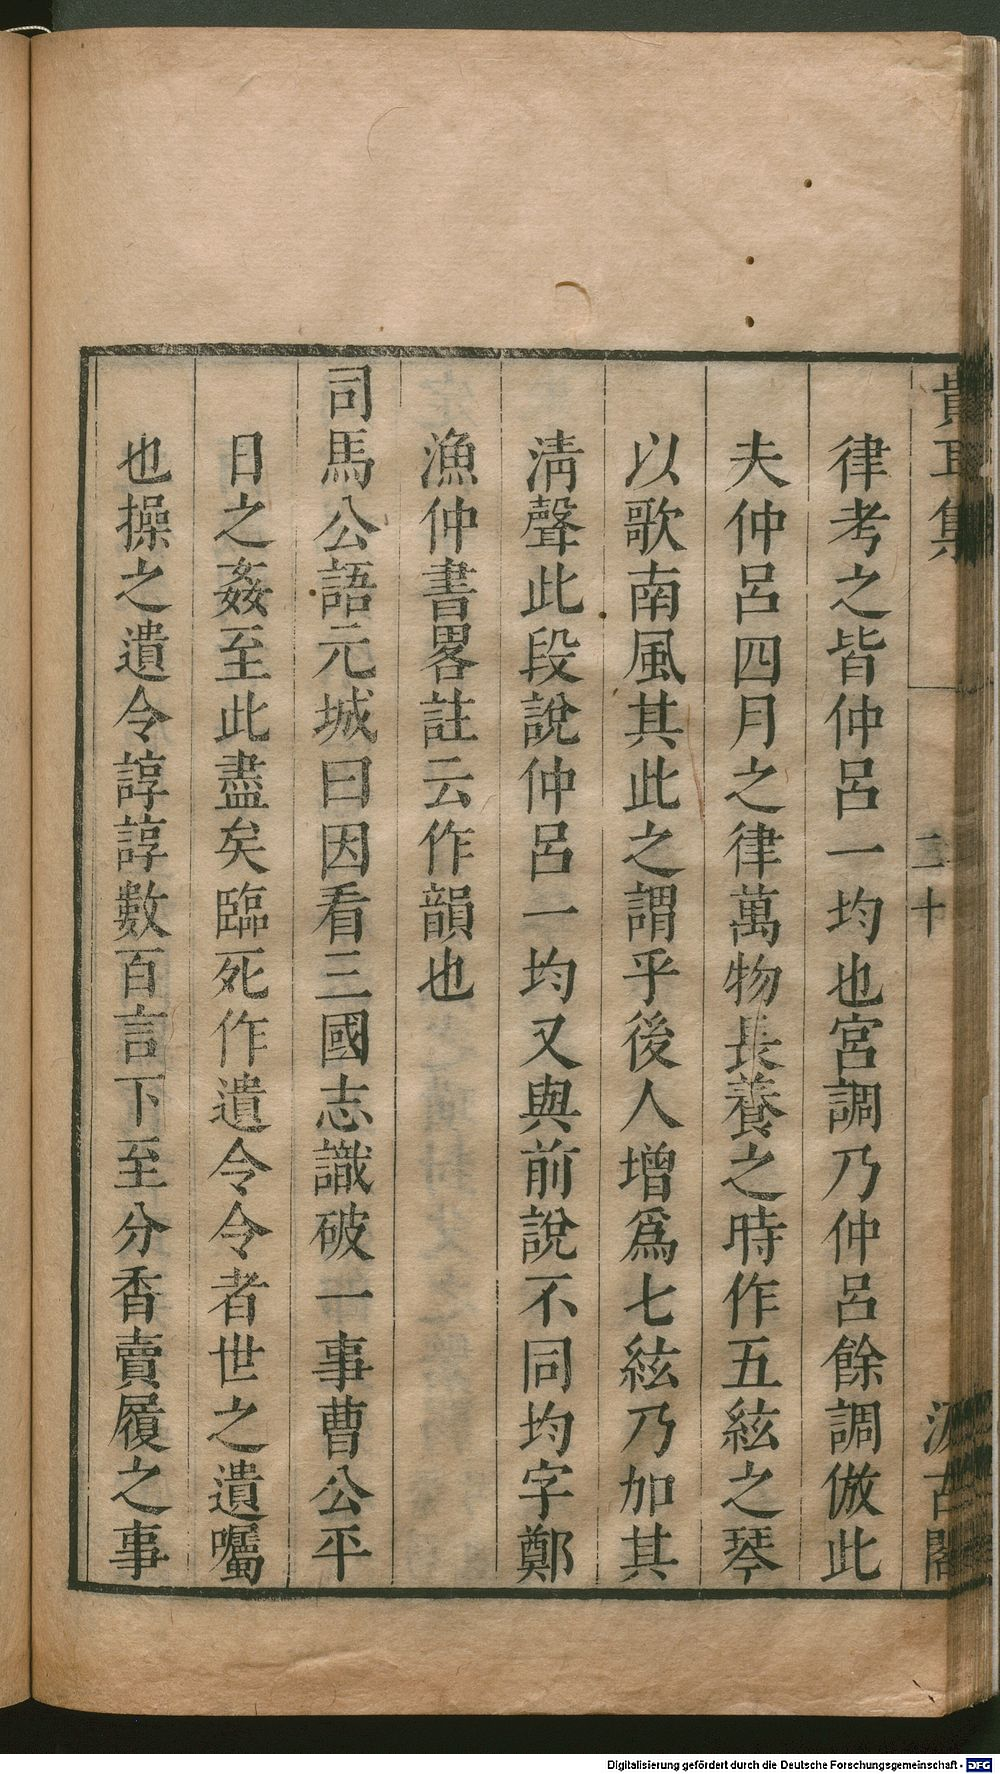 貴耳集
二十
汲古閣
律考之皆仲呂一均也宮調乃仲呂餘調倣此
夫仲呂四月之律萬物長養之時作五絃之琴
以歌南風其此之謂乎後人增爲七絃乃加其
淸聲此段說仲呂一均又與前說不同均字鄭
漁仲書畧註云作韻也
司馬公語元城曰因看三國志識破一事曹公平
日之姦至此盡矣臨死作遺令令者世之遺囑
也操之遺令諄諄數百言下至分香賣履之事
Digitalisierung gefördert durch die Deutsche Forschungsgemeinschaft - DFG